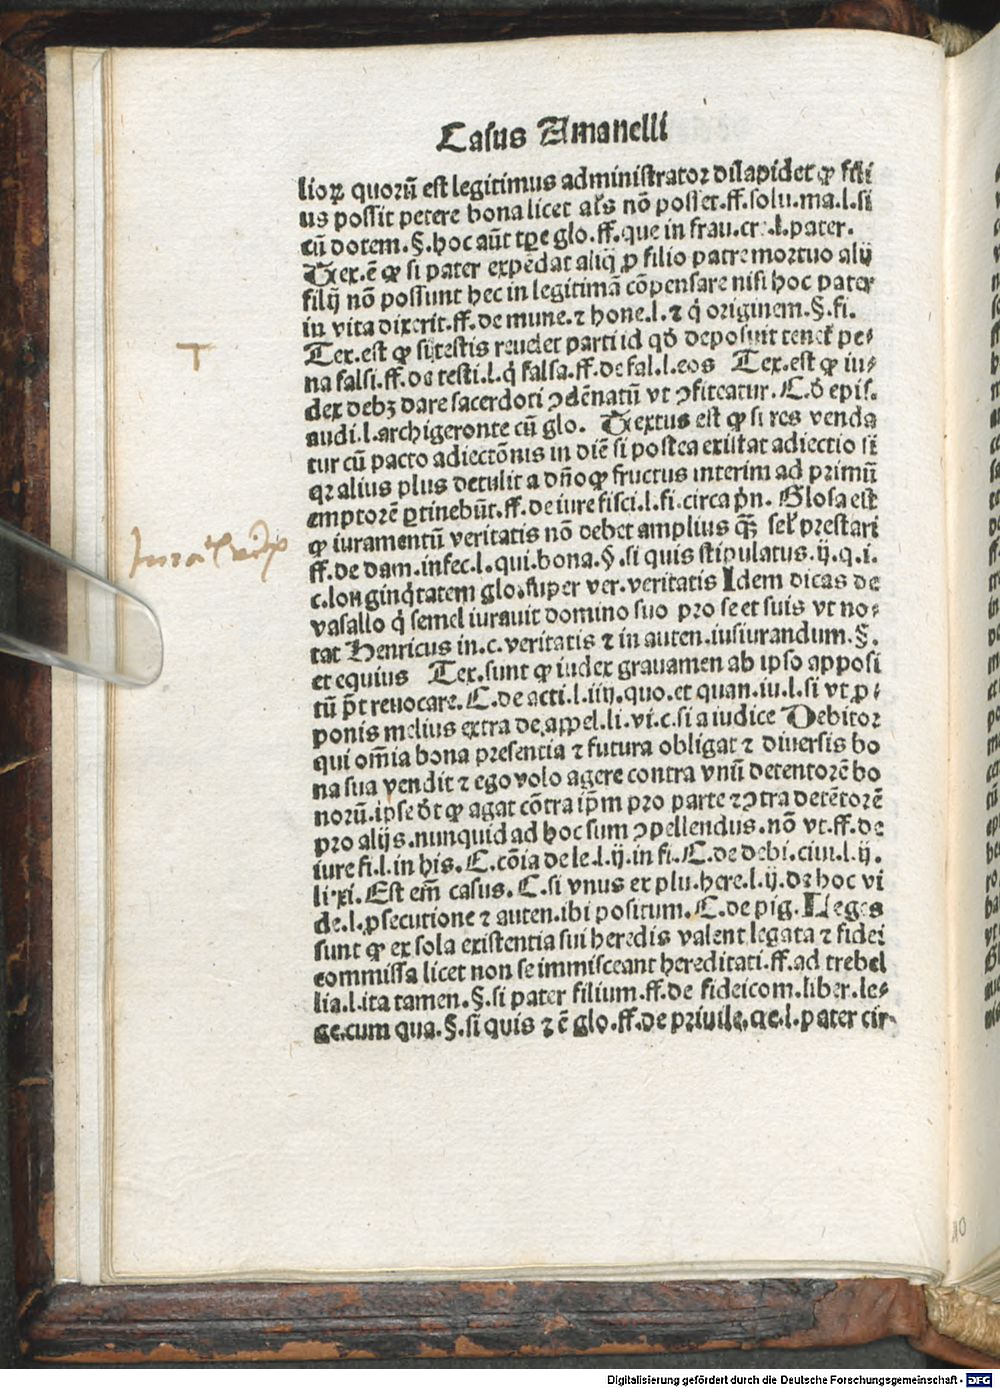 Casus Amanelli
lioꝝ quorū est legitimus administrator dilapidet ꝙ fili
us possit petere bona licet al's nō posset.ff.solu.ma.l.si
cū dotem.§.hoc aūt tꝑe glo.ff.que in frau.cre.l.pater.
Tex.ē ꝙ si pater expēdat aliqͥ ꝓ filio patre mortuo alij
filij nō possunt hec in legitimā cōpensare nisi hoc pater
in vita dixerit.ff.de mune.⁊ hone.l.⁊ qͥ originem.§.fi.
T
Tex.est ꝙ si testis reuelet parti id qd̄ deposuit tenet᷑ pe⸗
na falsi.ff.de testi.l.qͥ falsa.ff.de fal.l.eos Tex.est ꝙ iu⸗
dex debꝫ dare sacerdoti ꝯdēnatū vt ꝯfiteatur.C.d̄ epis.
audi.l.archigeronte cū glo. Textus est ꝙ si res venda
tur cū pacto adiectōnis in diē si postea existat adiectio
qꝛ alius plus detulit a dn̄o ꝙ fructus interim ad primū
emptorē ꝑtinebūt.ff.de iure fisci.l.fi.circa pͥn. Glosa est
ꝙ iuramentū veritatis nō debet amplius ꝙ̄ sel' prestari
ff.de dam.infec.l.qui.bona.§.si quis stipulatus.ij.q.i.
c.longinqͥtatem glo.super ver.veritatis Idem dicas de
vasallo qͥ semel iurauit domino suo pro se et suis vt no⸗
tat Henricus in.c.veritatis ⁊ in auten.iusiurandum.§.
et equius Tex.sunt ꝙ iudex grauamen ab ipso apposi
tū pōt reuocare.C.de acti.l.iiij.quo.et quan.iu.l.si vt ꝓ⸗
ponis melius extra de appel.li.vi.c.si a iudice Debitor
qui om̄ia bona presentia ⁊ futura obligat ⁊ diuersis bo
na sua vendit ⁊ ego volo agere contra vnū detentorē bo
norū.ipse dt̄ ꝙ agat cōtra ip̄m pro parte ⁊ ꝯtra detētorē
pro alijs.nunquid ad hoc sum ꝯpellendus.nō vt.ff.de
iure fi.l.in his.C.cōia de le.l.ij.in fi.C.de debi.ciui.l.ij.
li.xi.Est em̄ casus.C.si vnus ex plu.here.l.ij.de hoc vi
de.l.ꝑsecutione ⁊ auten.ibi positum.C.de pig.Leges
sunt ꝙ ex sola existentia sui heredis valent legata ⁊ fidei
commissa licet non se immisceant hereditati.ff.ad trebel
lia.l.ita tamen.§.si pater filium.ff.de fideicom.liber.le⸗
ge.cum qua.§.si quis ⁊ ē glo.ff.de priuile.qe.l.pater cir⸗
10
Digitalisierung gefördert durch die Deutsche Forschungsgemeinschaft - DFG